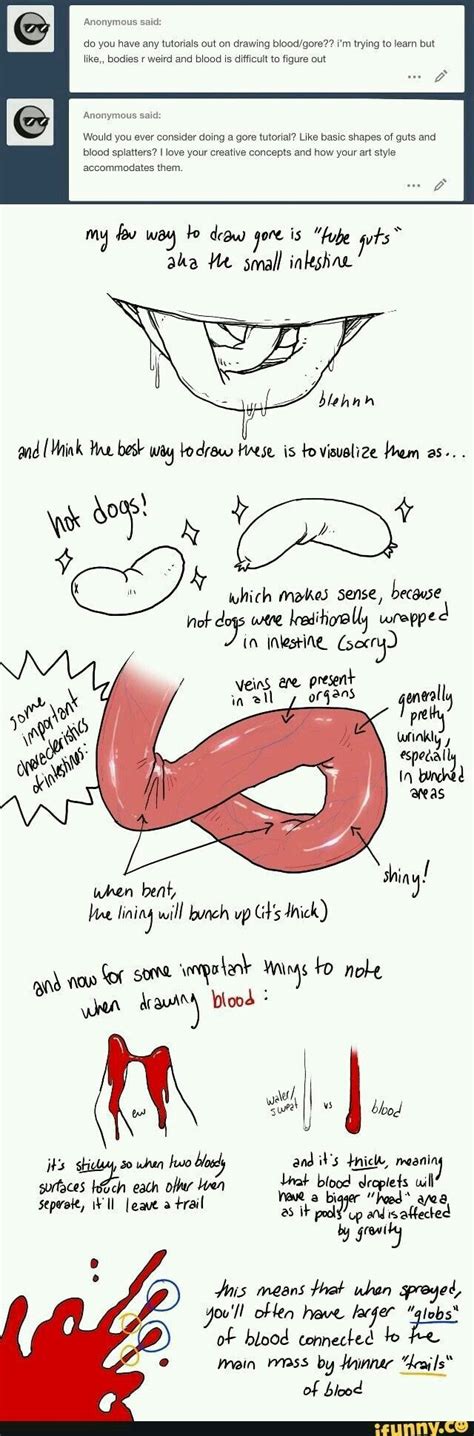 Anonymous said:
do you have any tutorials out on drawing blood/gore?? i'm trying to learn but
like,, bodies r weird and blood is difficult to figure out
Anonymous said:
Would you ever consider doing a gore tutorial? Like basic shapes of guts and
blood splatters? I love your creative concepts and how your art style
accommodates them.
my fav way to draw gore is "tube guts"
aka the small intestine
blehnn
and I think the best way to draw these is to visualize them as...
hot dogs!
which makes sense, because
hot dogs were traditionally wrapped
in intestine (sorry)
some
important
characteristics
of intestines:
veins are present
in all organs
generally
pretty
wrinkly,
especially
in bunched
areas
shiny!
when bent,
the lining will bunch up (it's thick)
and now for some important things to note
when drawing blood:
ew
water/
sweat
vs
blood
it's sticky, so when two bloody
surfaces touch each other then
seperate, it'll leave a trail
and it's thick, meaning
that blood droplets will
have a bigger "head" area
as it pools up and is affected
by gravity
this means that when sprayed,
you'll often have larger "globs"
of blood connected to the
main mass by thinner "trails"
of blood
ifunny.co